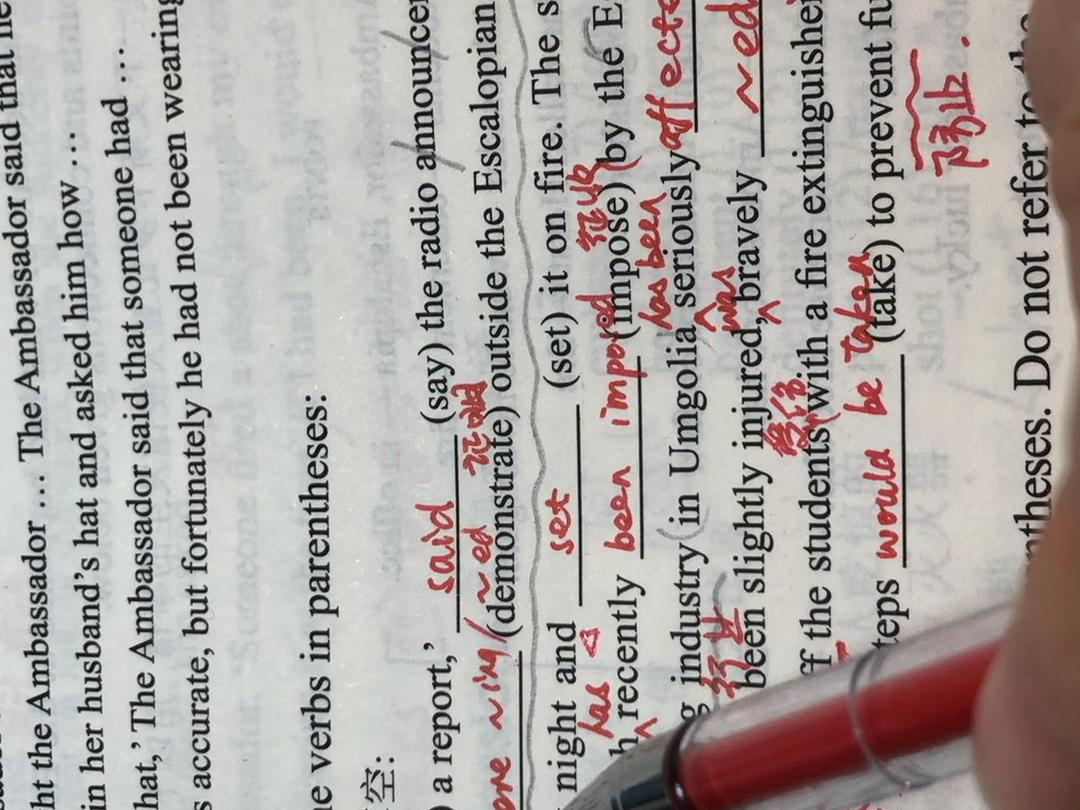 ht the Ambassador … The Ambassador said that he
in her husband's hat and asked him how …
hat,' The Ambassador said that someone had …
s accurate, but fortunately he had not been wearing
e verbs in parentheses:
空:
said
) a report,' (say) the radio announcer
~ing / ~ed
(demonstrate) outside the Escalopian
set
night and (set) it on fire. The s
has been imposed 征收
h recently (impose) (by the E
has been affecte
g industry (in Umgolia seriously
was ~ed
been slightly injured, bravely
ff the students with a fire extinguisher
would be taken
teps (take) to prevent fu
ntheses. Do not refer to the